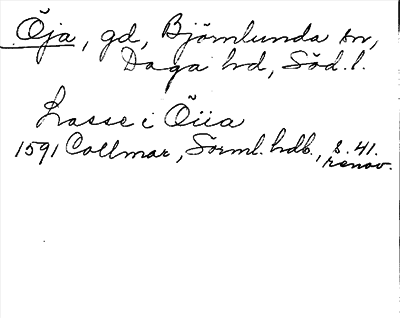 Öja, gd, Björnlunda sn,
Daga hd, Söd.l.
Lasse i Öiia
1591 Collmar, Sörml. hdb., s. 41.
renov.